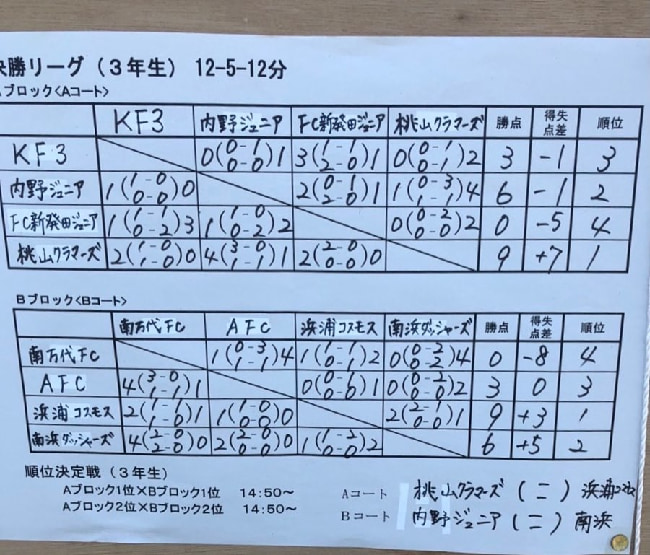 決勝リーグ（３年生） 12-5-12分
Aブロック<Aコート>
KF3 内野ジュニア FC新発田ジュニア 桃山クラマーズ 勝点 得失点差 順位
KF3 0(0-1 0-0)1 3(1-1 2-0)1 0(0-1 0-1)2 3 -1 3
内野ジュニア 1(1-0 0-0)0 2(0-1 2-0)1 1(0-3 1-1)4 6 -1 2
FC新発田ジュニア 1(1-1 0-2)3 1(1-0 0-2)2 0(0-2 0-0)2 0 -5 4
桃山クラマーズ 2(1-0 1-0)0 4(3-0 1-1)1 2(2-0 0-0)0 9 +7 1
Bブロック<Bコート>
南万代FC AFC 浜浦コスモス 南浜ダッシャーズ 勝点 得失点差 順位
南万代FC 1(0-3 1-1)4 1(1-1 0-1)2 0(0-2 0-2)4 0 -8 4
AFC 4(3-0 1-1)1 0(0-1 0-0)1 0(0-2 0-0)2 3 0 3
浜浦コスモス 2(1-1 1-0)1 1(1-0 0-0)0 2(2-1 0-0)1 9 +3 1
南浜ダッシャーズ 4(2-0 2-0)0 2(2-0 0-0)0 1(1-2 0-0)2 6 +5 2
順位決定戦（３年生）
Aブロック１位×Bブロック１位 14:50～ Aコート 桃山クラマーズ (二) 浜浦コスモス
Aブロック２位×Bブロック２位 14:50～ Bコート 内野ジュニア (二) 南浜